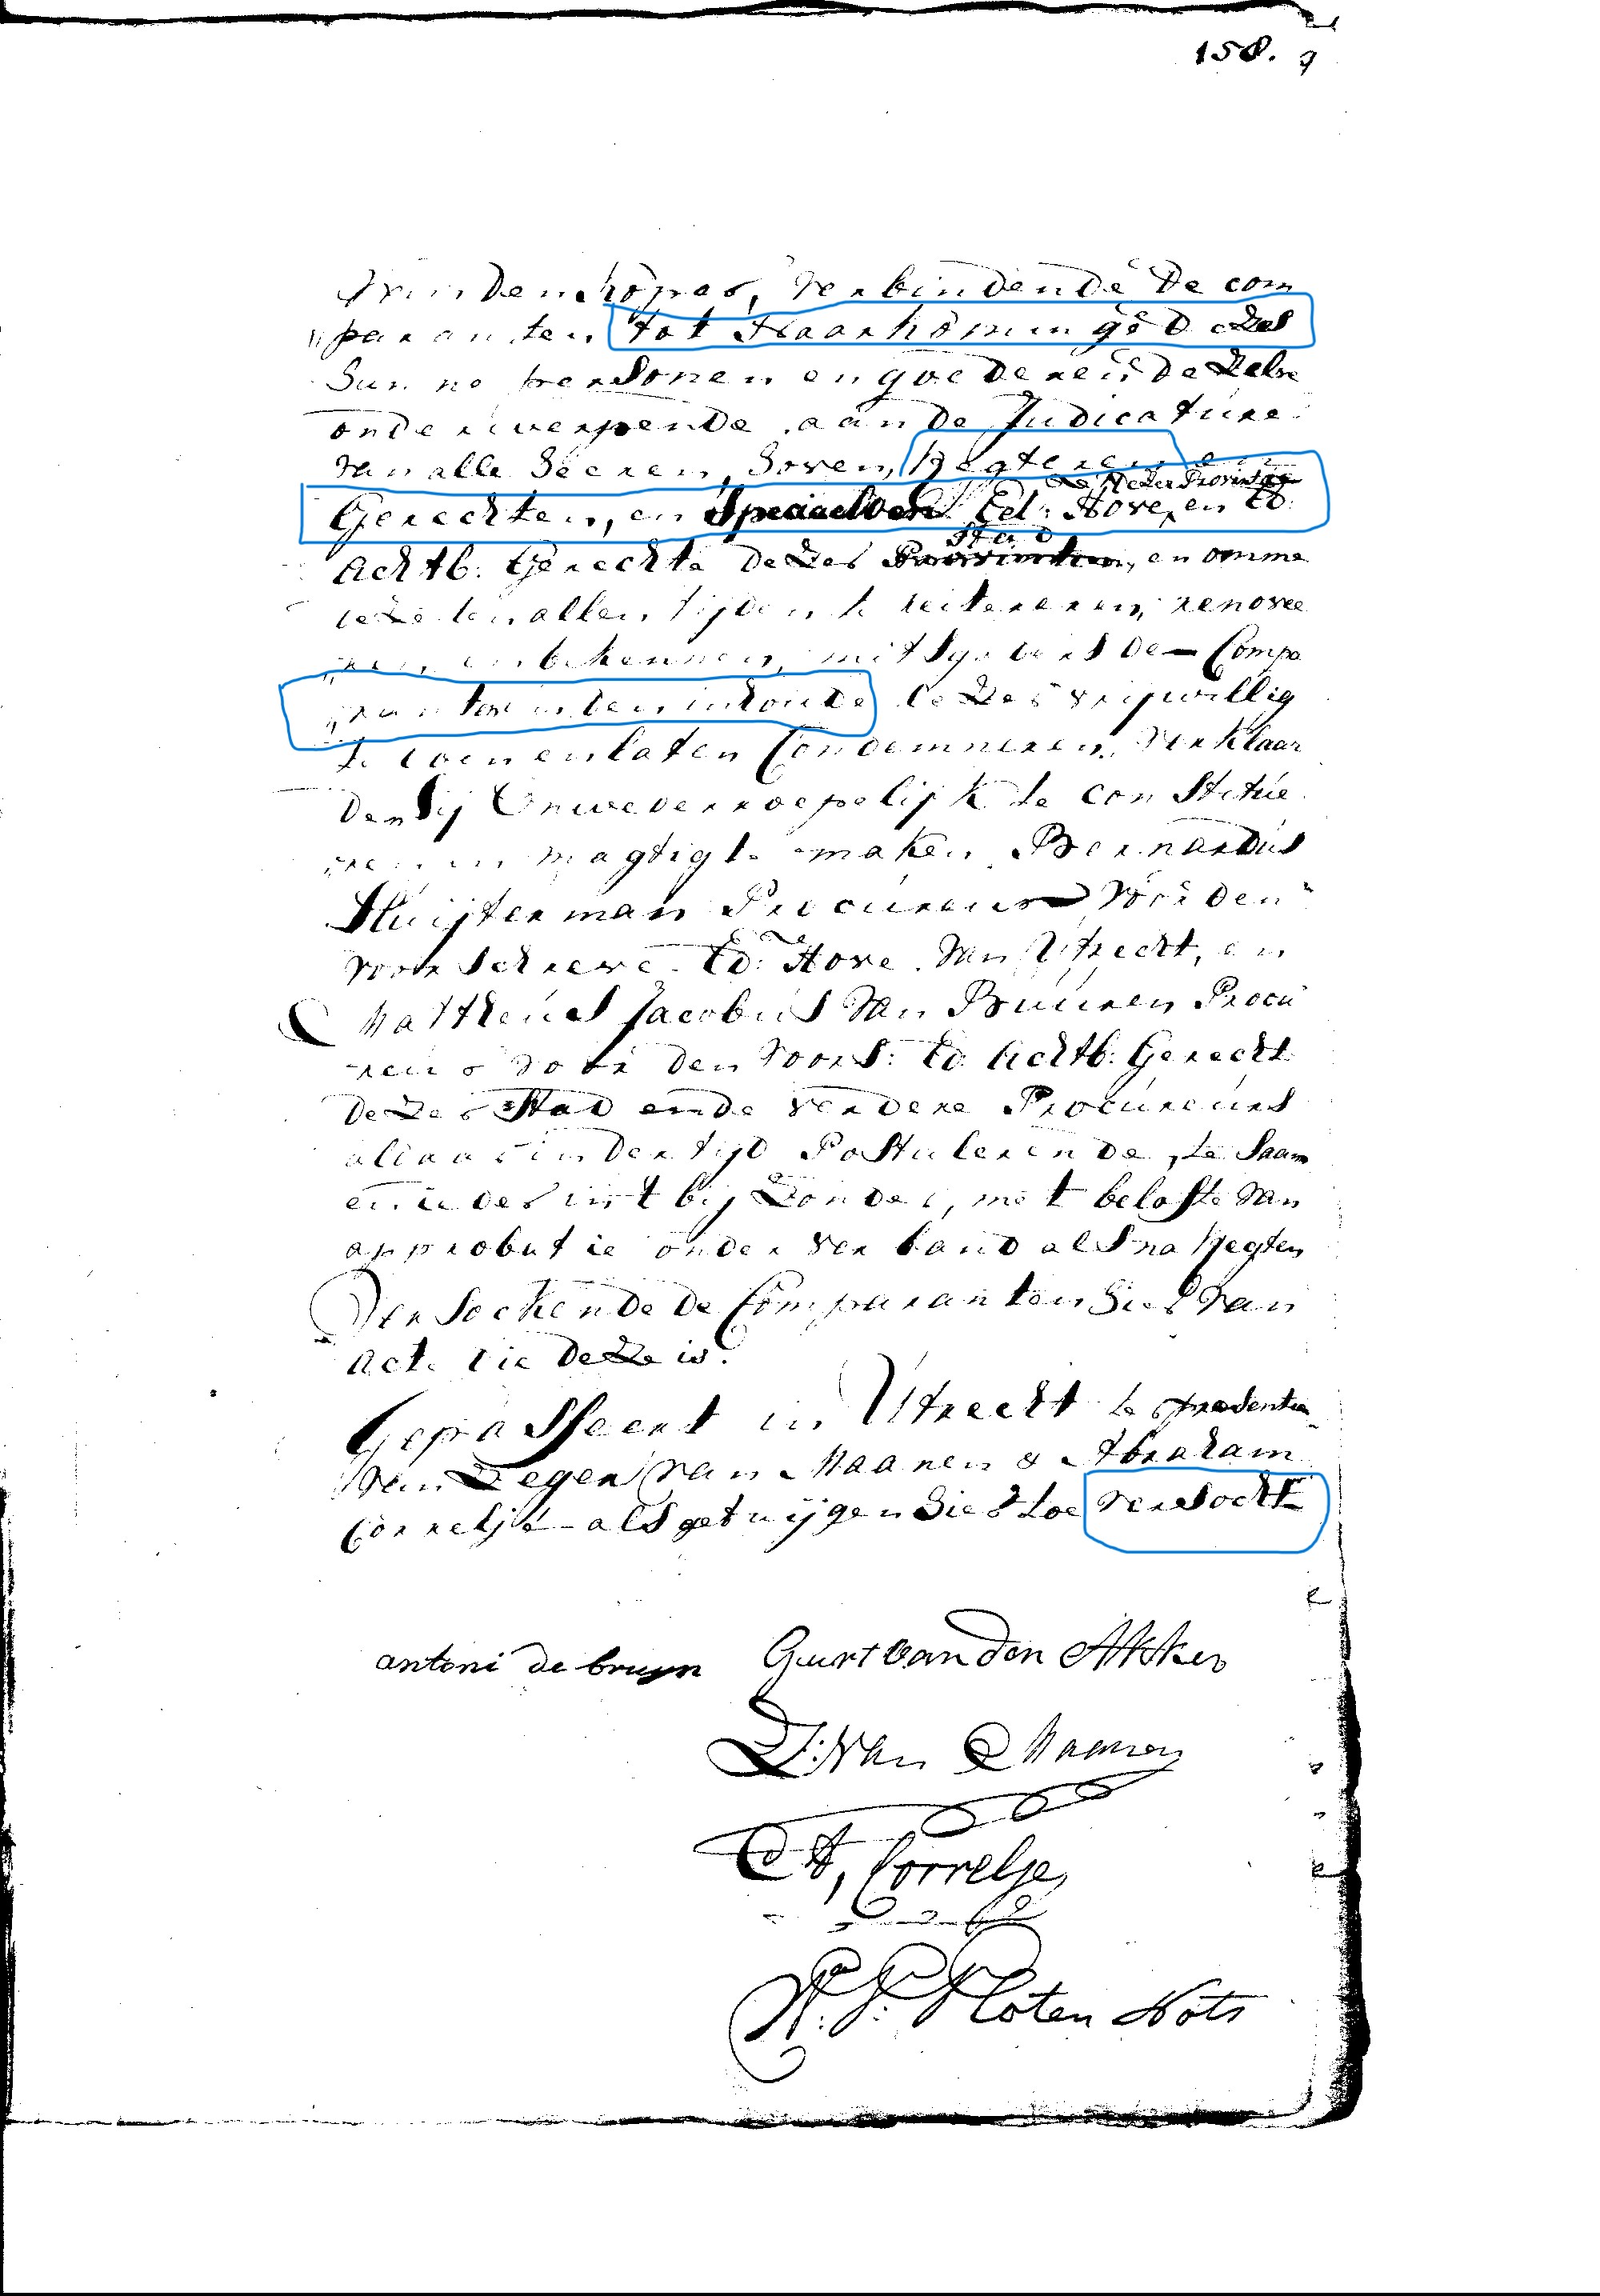 158.
verbindende de com
paranten, tot naarkominge deses
hunne persoonen en goederen de selve
onderwerpende aan de Judicature
van alle Heeren, Hoven, Regteren en
Gerechten, en Speciael den Ed: Hove, en Ed:
Achtb: Gerechte deses Stad, en omme
deze ten allen tijden te reitereren, renovee
ren en bekennen, mitsgaders de Compa
ranten in den inhoude deses vrijwillig
te doen en laten Condemneren, verklaar
den sij Onwederroepelijk te Constitue
ren en magtig te maken Bernardus
Sluijterman Procureur voor den
voorschreve Ed: Hove van Utrecht, en
Mattheus Jacobus van Buuren Procu
reur voor den voors: Ed. Achtb: Gerecht
deses Stad ende verdere Procureurs
aldaar in der tijd Postulerende, te saam
en ieder int bijzonder, met belofte van
approbatie onder verband als na Regten
Versoekende de Comparanten hier van
Acte die deze is.
Gepasseert in Utrecht te presentie
van Zeger van Maanen & Abraham
Correljé als getuijgen hier toe versocht
antoni de bruyn Geurt van den Akker
Z: van Maanen
A, Correlje,
Vloten Nots